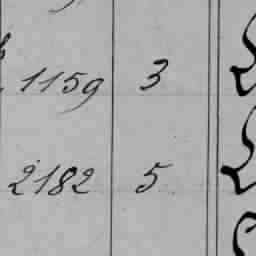 1159 3
2182 5